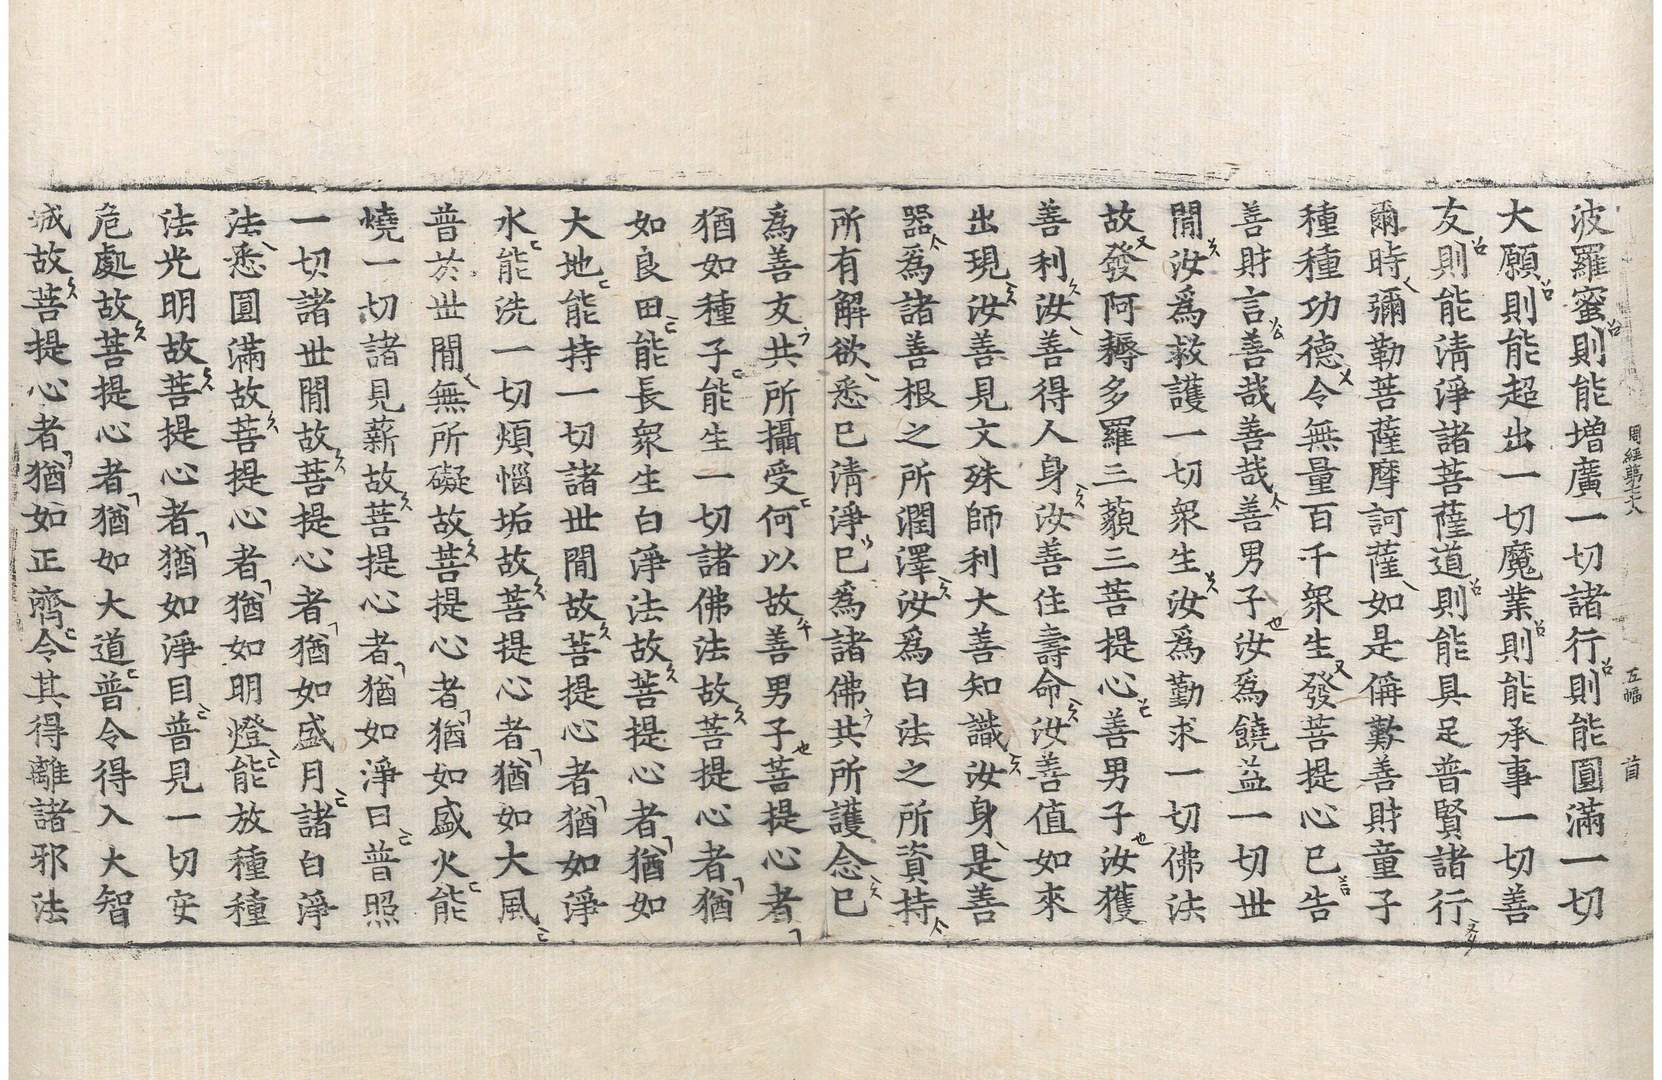 周經第七八 五幅 首
波羅蜜則能增廣一切諸行則能圓滿一切
大願則能超出一切魔業則能承事一切善
友則能淸淨諸菩薩道則能具足普賢諸行
爾時彌勒菩薩摩訶薩如是稱歎善財童子
種種功德令無量百千衆生發菩提心已告
善財言善哉善哉善男子汝爲饒益一切世
閒汝爲救護一切衆生汝爲勤求一切佛法
故發阿耨多羅三藐三菩提心善男子汝獲
善利汝善得人身汝善住壽命汝善値如來
出現汝善見文殊師利大善知識汝身是善
器爲諸善根之所潤澤汝爲白法之所資持
所有解欲悉已淸淨已爲諸佛共所護念已
爲善友共所攝受何以故善男子菩提心者
猶如種子能生一切諸佛法故菩提心者猶
如良田能長衆生白淨法故菩提心者猶如
大地能持一切諸世閒故菩提心者猶如淨
水能洗一切煩惱垢故菩提心者猶如大風
普於世閒無所礙故菩提心者猶如盛火能
燒一切諸見薪故菩提心者猶如淨日普照
一切諸世閒故菩提心者猶如盛月諸白淨
法悉圓滿故菩提心者猶如明燈能放種種
法光明故菩提心者猶如淨目普見一切安
危處故菩提心者猶如大道普令得入大智
城故菩提心者猶如正濟令其得離諸邪法